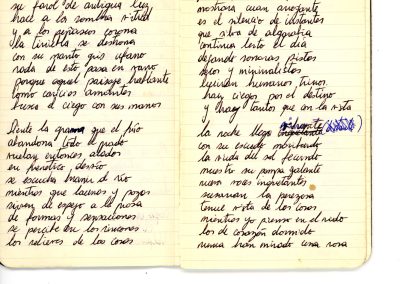 su farol de antigua luz
hace a la sombra
y a los peñascos corona
la tiniebla se desmorona
con su manto gris ufano
nada de esto pasa en vano
porque aquel paisaje hablante
como caricias amantes
busca el ciego con sus manos
siente la grama que el frío
abandona todo el prado
vuelan entonces alados
en frenético desvío
se escucha bramar el río
mientras que lagunas y pozos
sirven de espejo a la prosa
de formas y sensaciones
se percibe en los rincones
los relieves de las cosas
mostrará cuan arrogante
es el silencio de instantes
que silba de algarabía
continua lento el día
dejando sonoras pistas
secos y minimalistas
lucirán humanos trinos
hay ciegos por el destino
y hay tantos que con la vista
la noche llega vibrante (distinta)
con su escudo moribundo
la viuda del sol fecundo
muestra su pompa galante
nueve voces inquietantes
susurran la perezosa
tenue vista de las cosas
mientras yo pienso en el ruido
los de corazón dormido
nunca han mirado una rosa